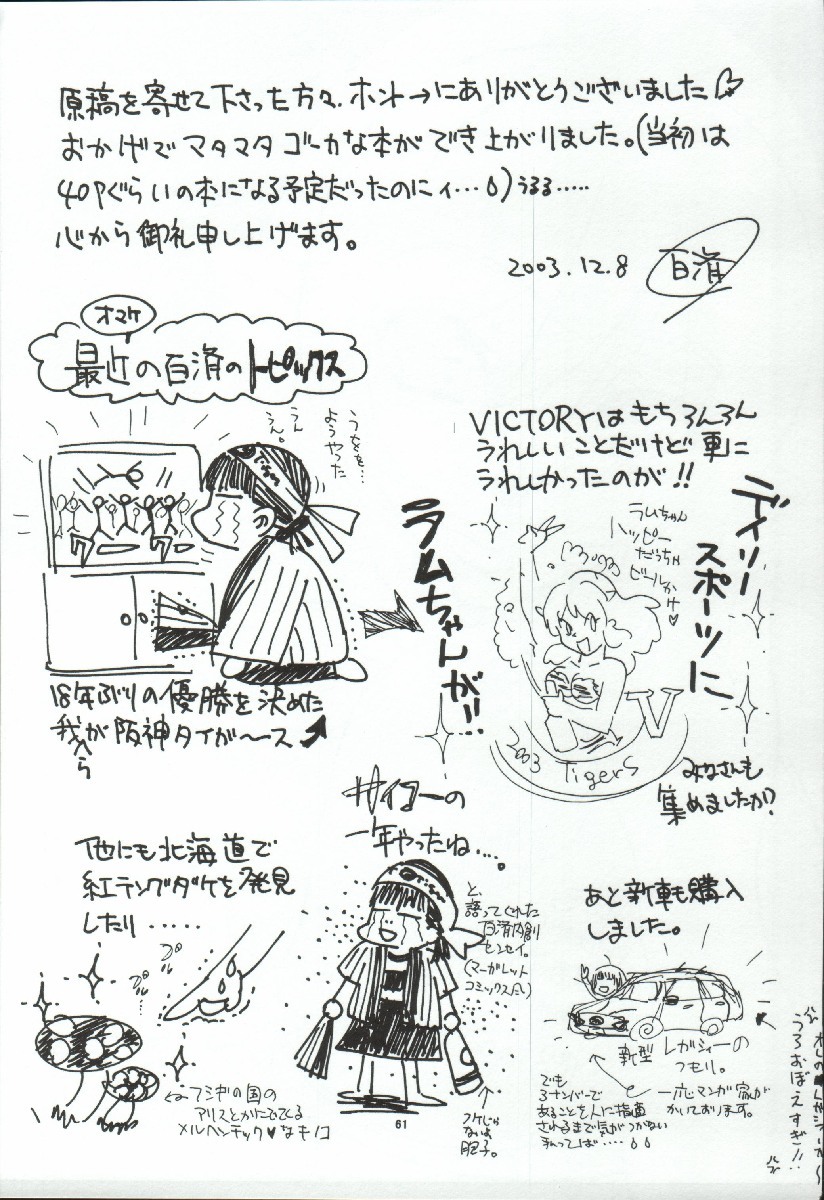 原稿を寄せて下さった方々、ホント→にありがとうございました
おかげでマタマタゴーカな本ができ上がりました。(当初は
40Pぐらいの本になる予定だったのにィ…)うるる……
心から御礼申し上げます。
2003.12.8
百済
オマケ
最近の百済のトピックス
うをを…
ようやった
うん
うん。
18年ぶりの優勝を決めた
我が阪神タイガ〜ス
ラムちゃんが!!
VICTORYはもちろんろん
うれしいことだけど更に
うれしかったのが!!
デイリー
スポーツに
ラムちゃん
ハッピー
だっちゃ
ビールかけ♥
V
2003 Tigers
みなさんも
集めましたか?
サイコーの
一年やったね…。
と、
語ってくれた
百済内創
センセイ。
(マーガレット
コミックスだし)
他にも北海道で
紅テングダケを発見
したり……
プル
プル
……
フシギの国の
アリスとかにでてくる
メルヘンチック♥なキノコ
あと新車も購入
しました。
新型レガシィーの
つもり。
一応マンガ家が
かいております。
でも
3ナンバーで
あることを人に指摘
されるまで気がつかない
私ってば……
うろおぼえすぎ!!
61